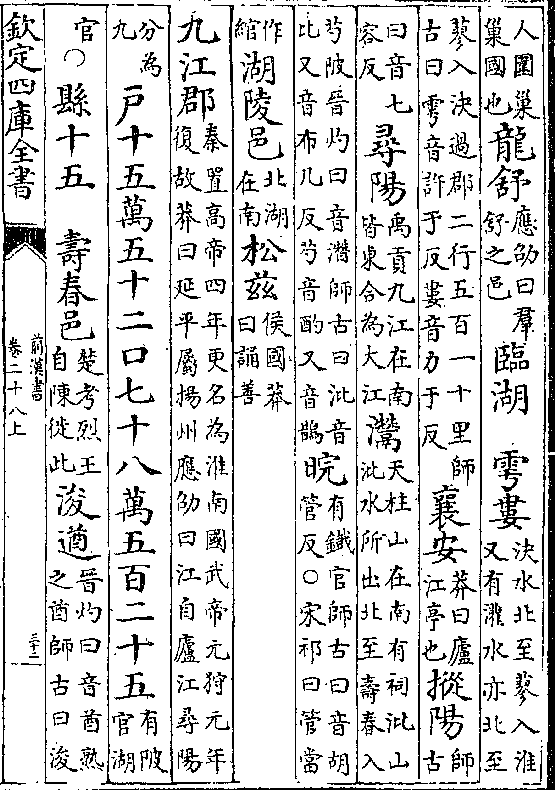 人圍巢巢國也龍舒應劭曰羣舒之邑臨湖 雩婁決水北至蓼入淮又有灌水亦北至
蓼入決過郡二行五百一十里師古曰雩音許于反婁音力于反襄安莽曰廬江亭也樅陽師古
曰音七容反尋陽禹貢九江在南皆東合為大江灊天柱山在南有祠沘山沘水所出北至壽春入
芍陂晉灼曰音潛師古曰沘音比又音布几反芍音酌又音鵲晥有鐵官師古曰音胡管反○宋祁曰管當
作綰湖陵邑北湖在南松茲侯國莽曰誦善
九江郡秦置高帝四年更名為淮南國武帝元狩元年復故莽曰延平屬揚州應劭曰江自廬江尋陽
分為九戸十五萬五十二口七十八萬五百二十五有陂官湖
官○縣十五 壽春邑楚考烈王自陳徙此浚遒晉灼曰音酋熟之酋師古曰浚
欽定四庫全書
前漢書
卷二十八上
三十二